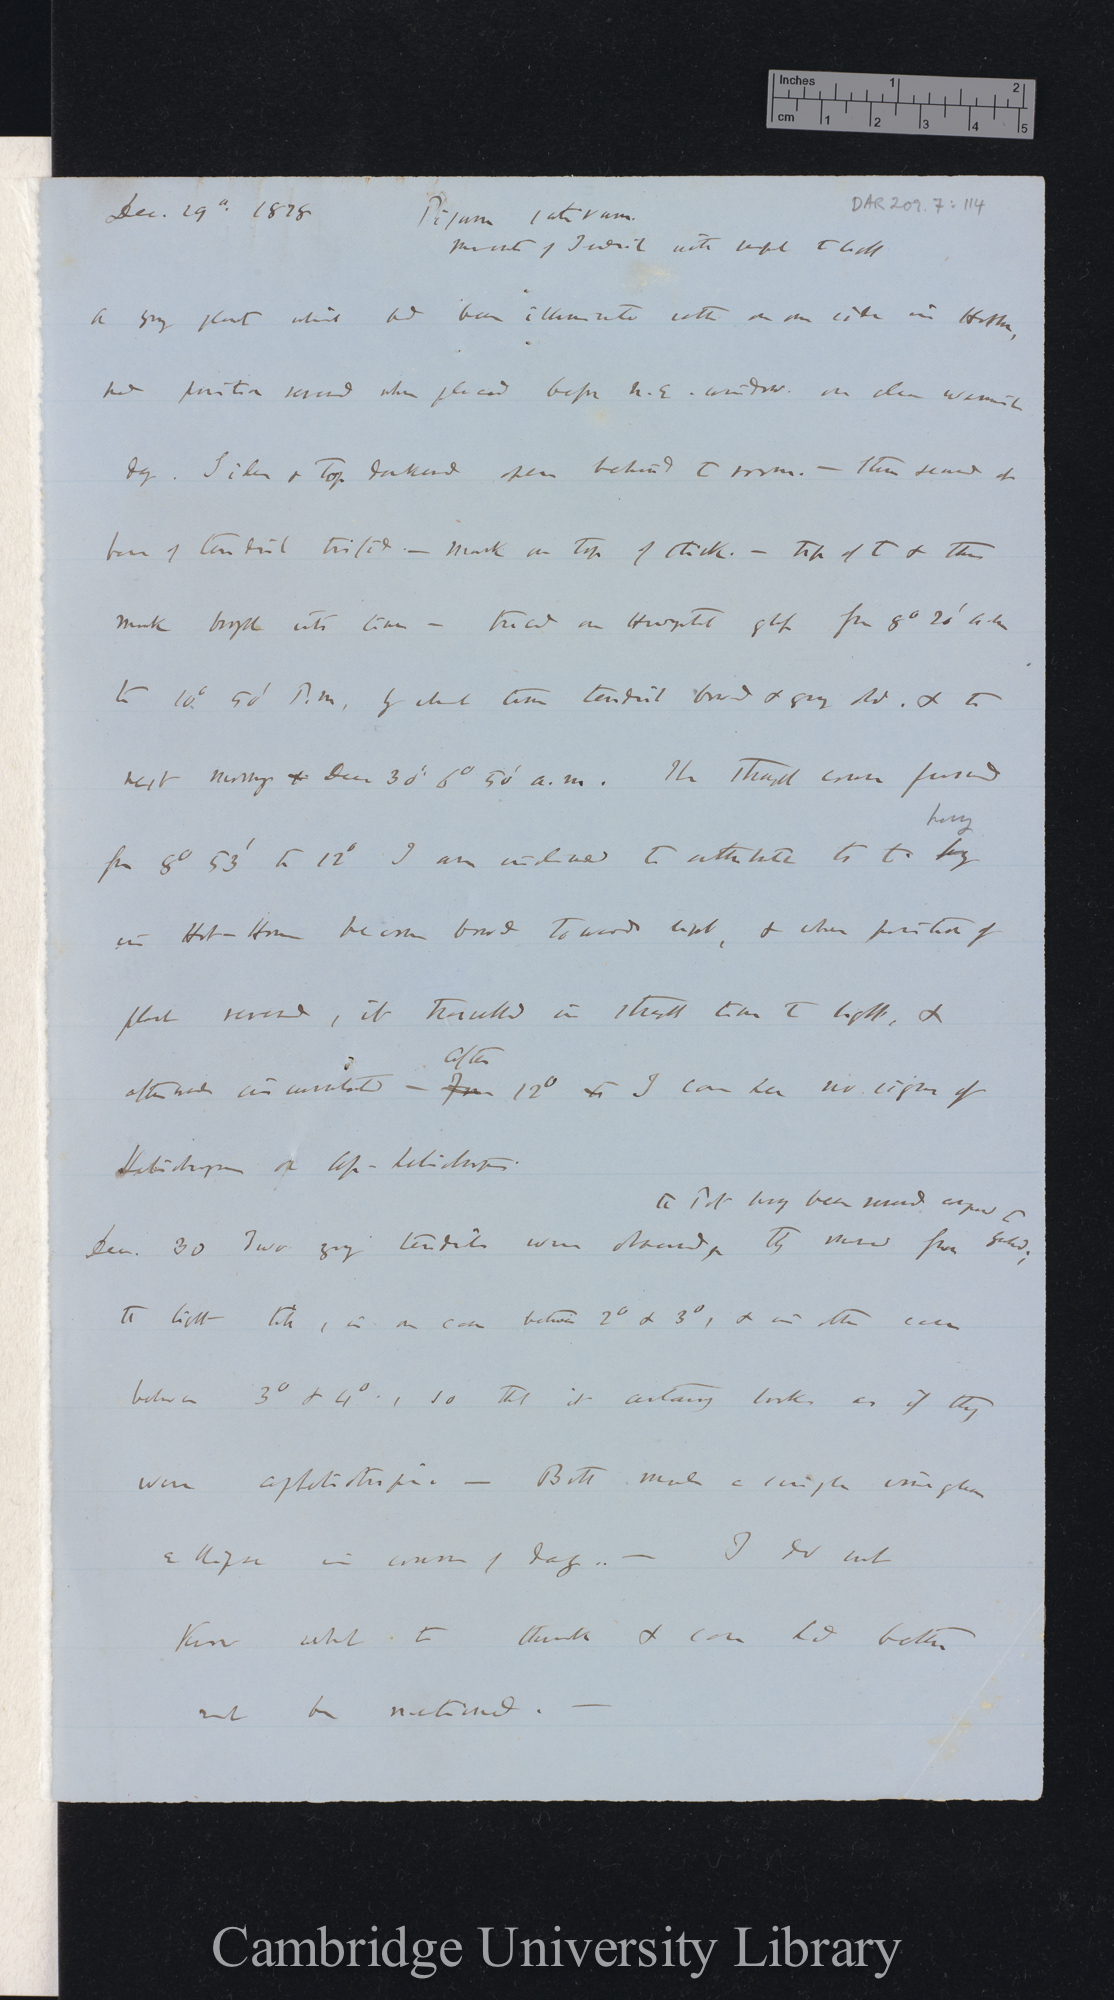 Inches 1 2
cm 1 2 3 4 5
DAR 209.7: 114
Dec. 29th. 1878 Pisum sativum.
Movement of Tendril with respect to light
A young plant which had been illuminated on one side in Hothouse,
had position reversed when placed before N.E. window. on clear warmish
day. Sides & top darkened open behind to room. — stem secured at
base of tendril — Mark on top of stick. — tip of T & this
mark brought into line — traced on Horizontal glass from 8° 20' a.m
to 10° 50' P.m, by which time tendril & grown old. & to
next morning Dec 30' 6° 50' a.m. The straight course pursued
from 8° 53' to 12° I am inclined to attribute to its having
in Hot-House become bowed towards light, & when position of
plant reversed, it travelled in straight line to light, &
afterwards circumnutated — after 12° I can see no signs of
Heliotropism or Ap-heliotropism.
to Pot having been
Dec. 30 Two young tendrils were observed, they moved from
to light till, in one case between 2° & 3°, & in other case
between 3° & 4°., so that it certainly looks as if they
were apheliotropic — Both made a single irregular
ellipse in course of day.. — I do not
know what to think & case had better
not be noticed. —
Cambridge University Library